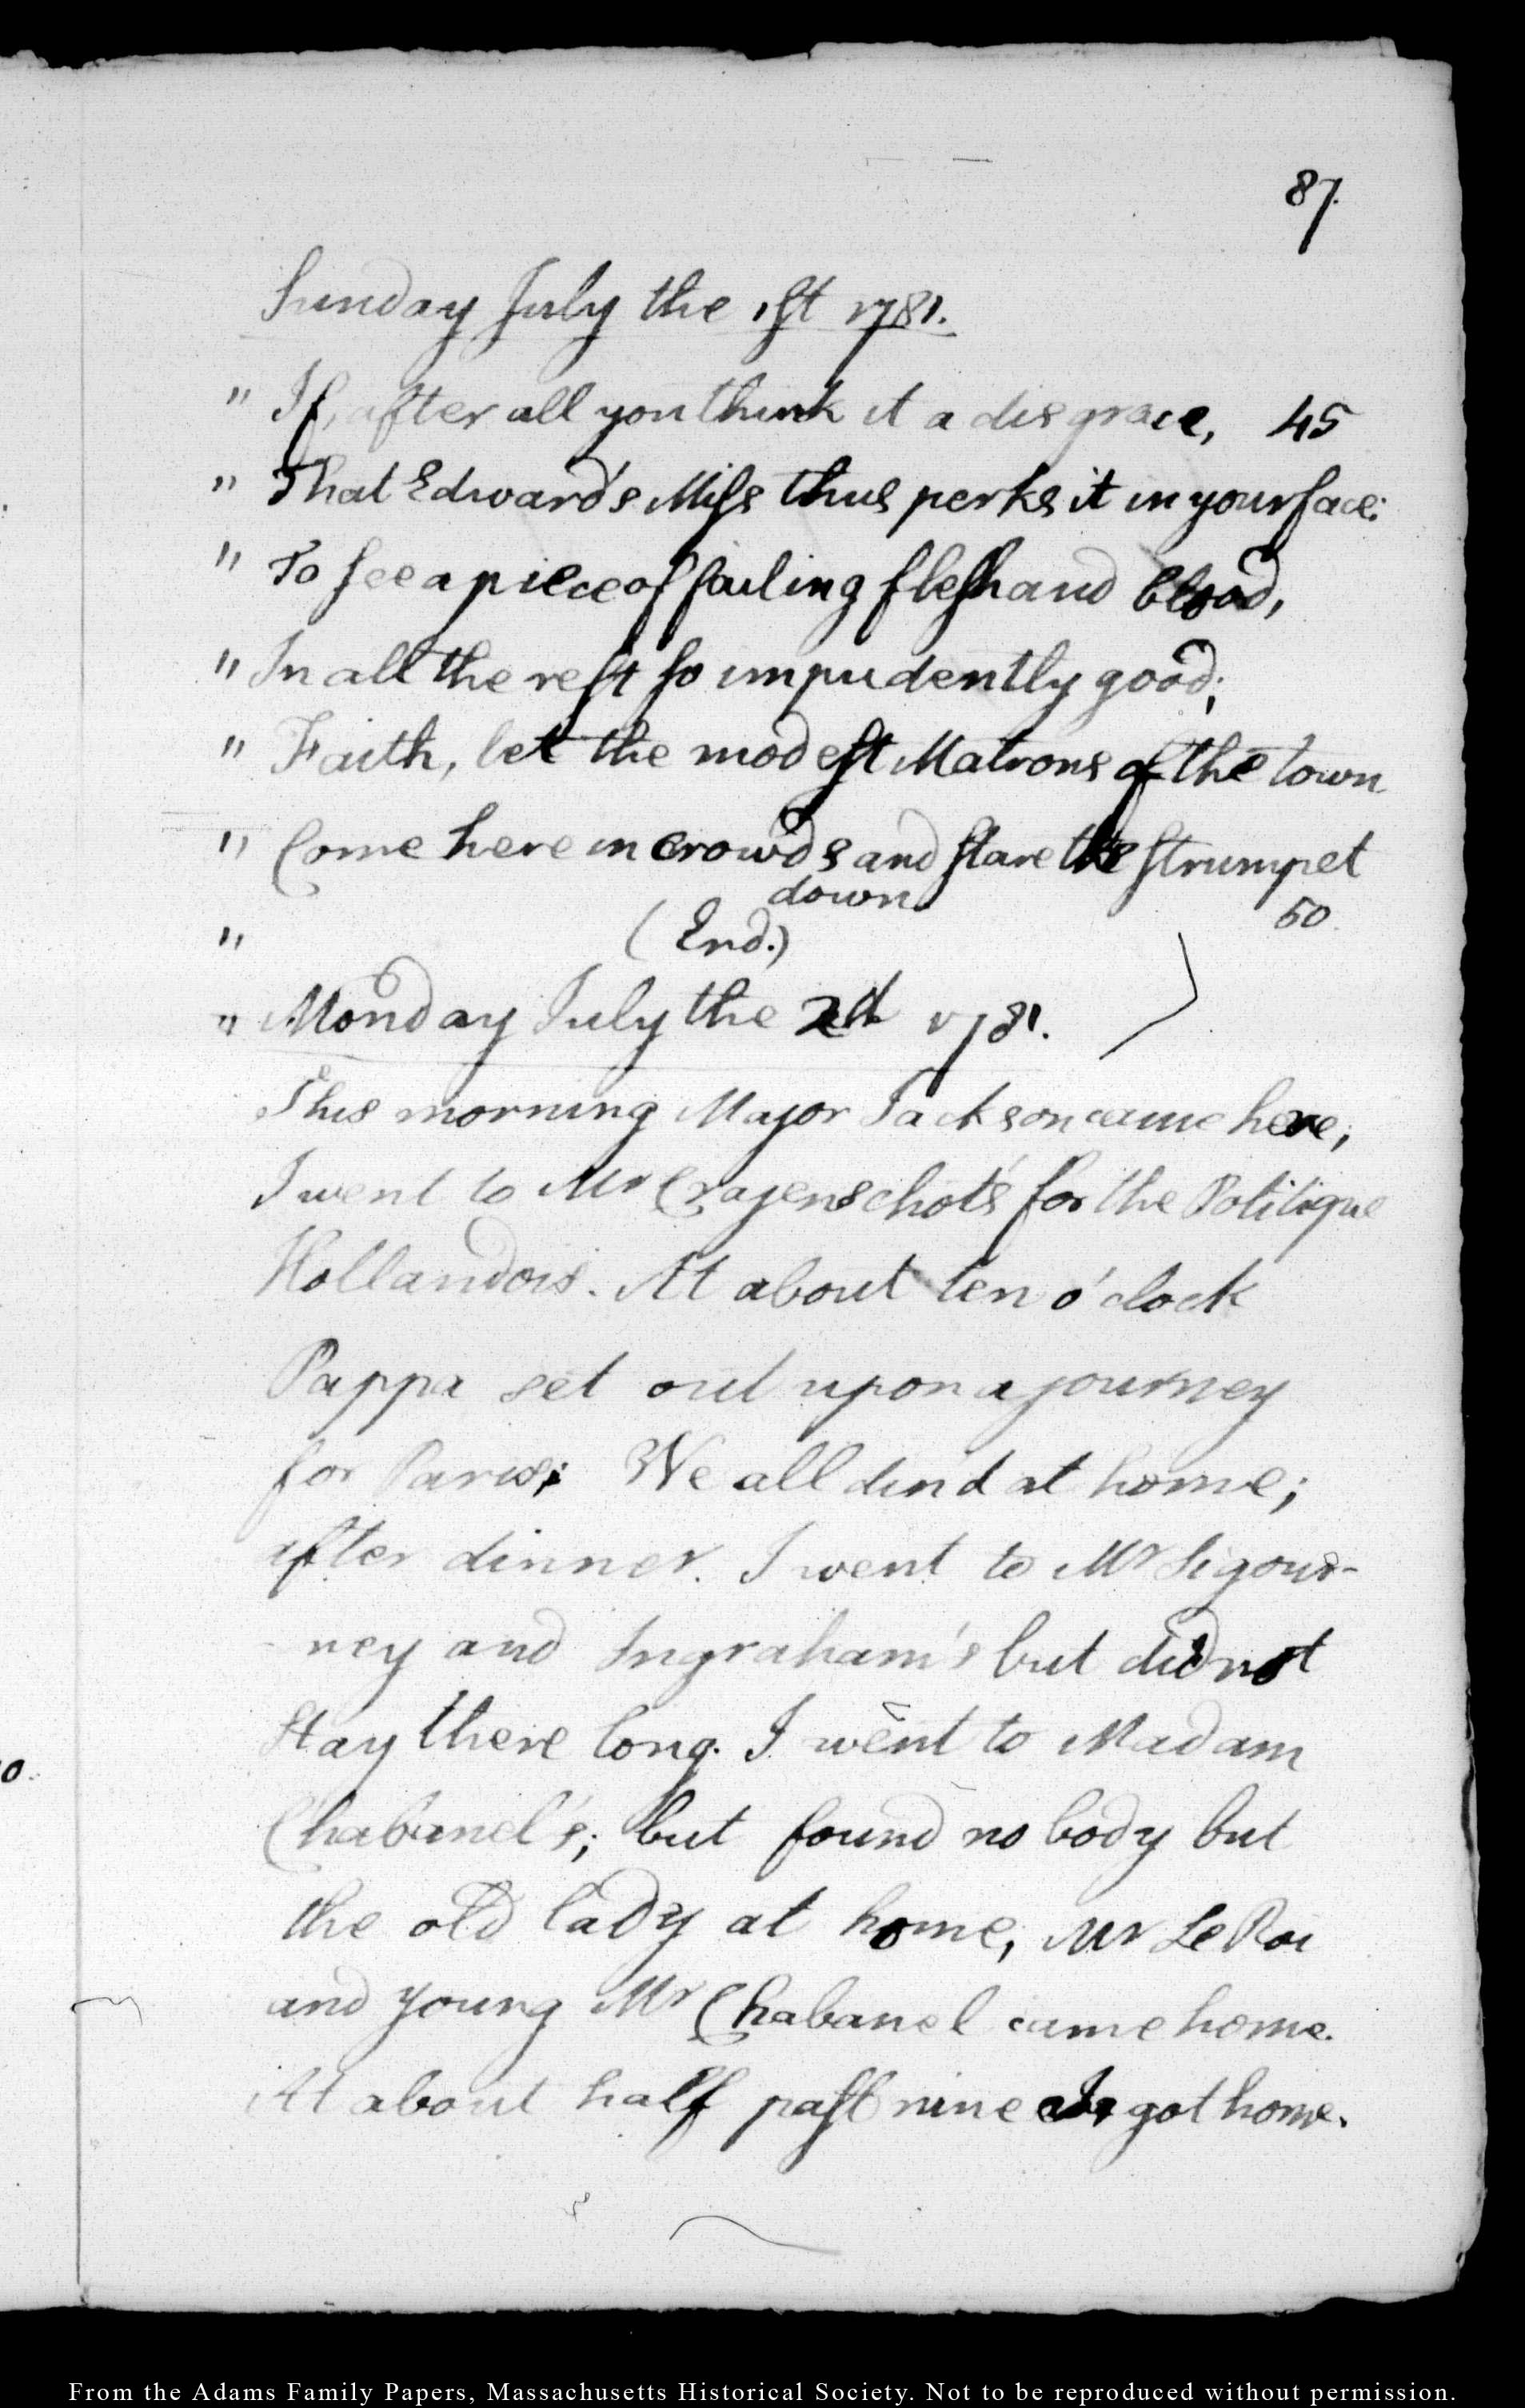 87.
Sunday July the 1st 1781.
" If, after all you think it a disgrace, 45
" That Edward's Miss thus perks it in your face:
" To see a piece of failing flesh and blood,
" In all the rest so impudently good;
" Faith, let the modest Matrons of the town
" Come here in crowds and stare the strumpet
down
50.
" (End.)
" Monday July the 2d 1781.
This morning Major Jackson came here;
I went to Mr Crajenschot's for the Politique
Hollandois. At about ten o'clock
Pappa set out upon a journey
for Paris; We all din'd at home;
after dinner. I went to Mr Sigour-
ney and Ingraham's but did not
stay there long. I went to Madam
Chabanel's; but found no body but
the old lady at home; Mr Le Roi
and young Mr Chabanel came home.
At about half past nine got home.
0.
From the Adams Family Papers, Massachusetts Historical Society. Not to be reproduced without permission.